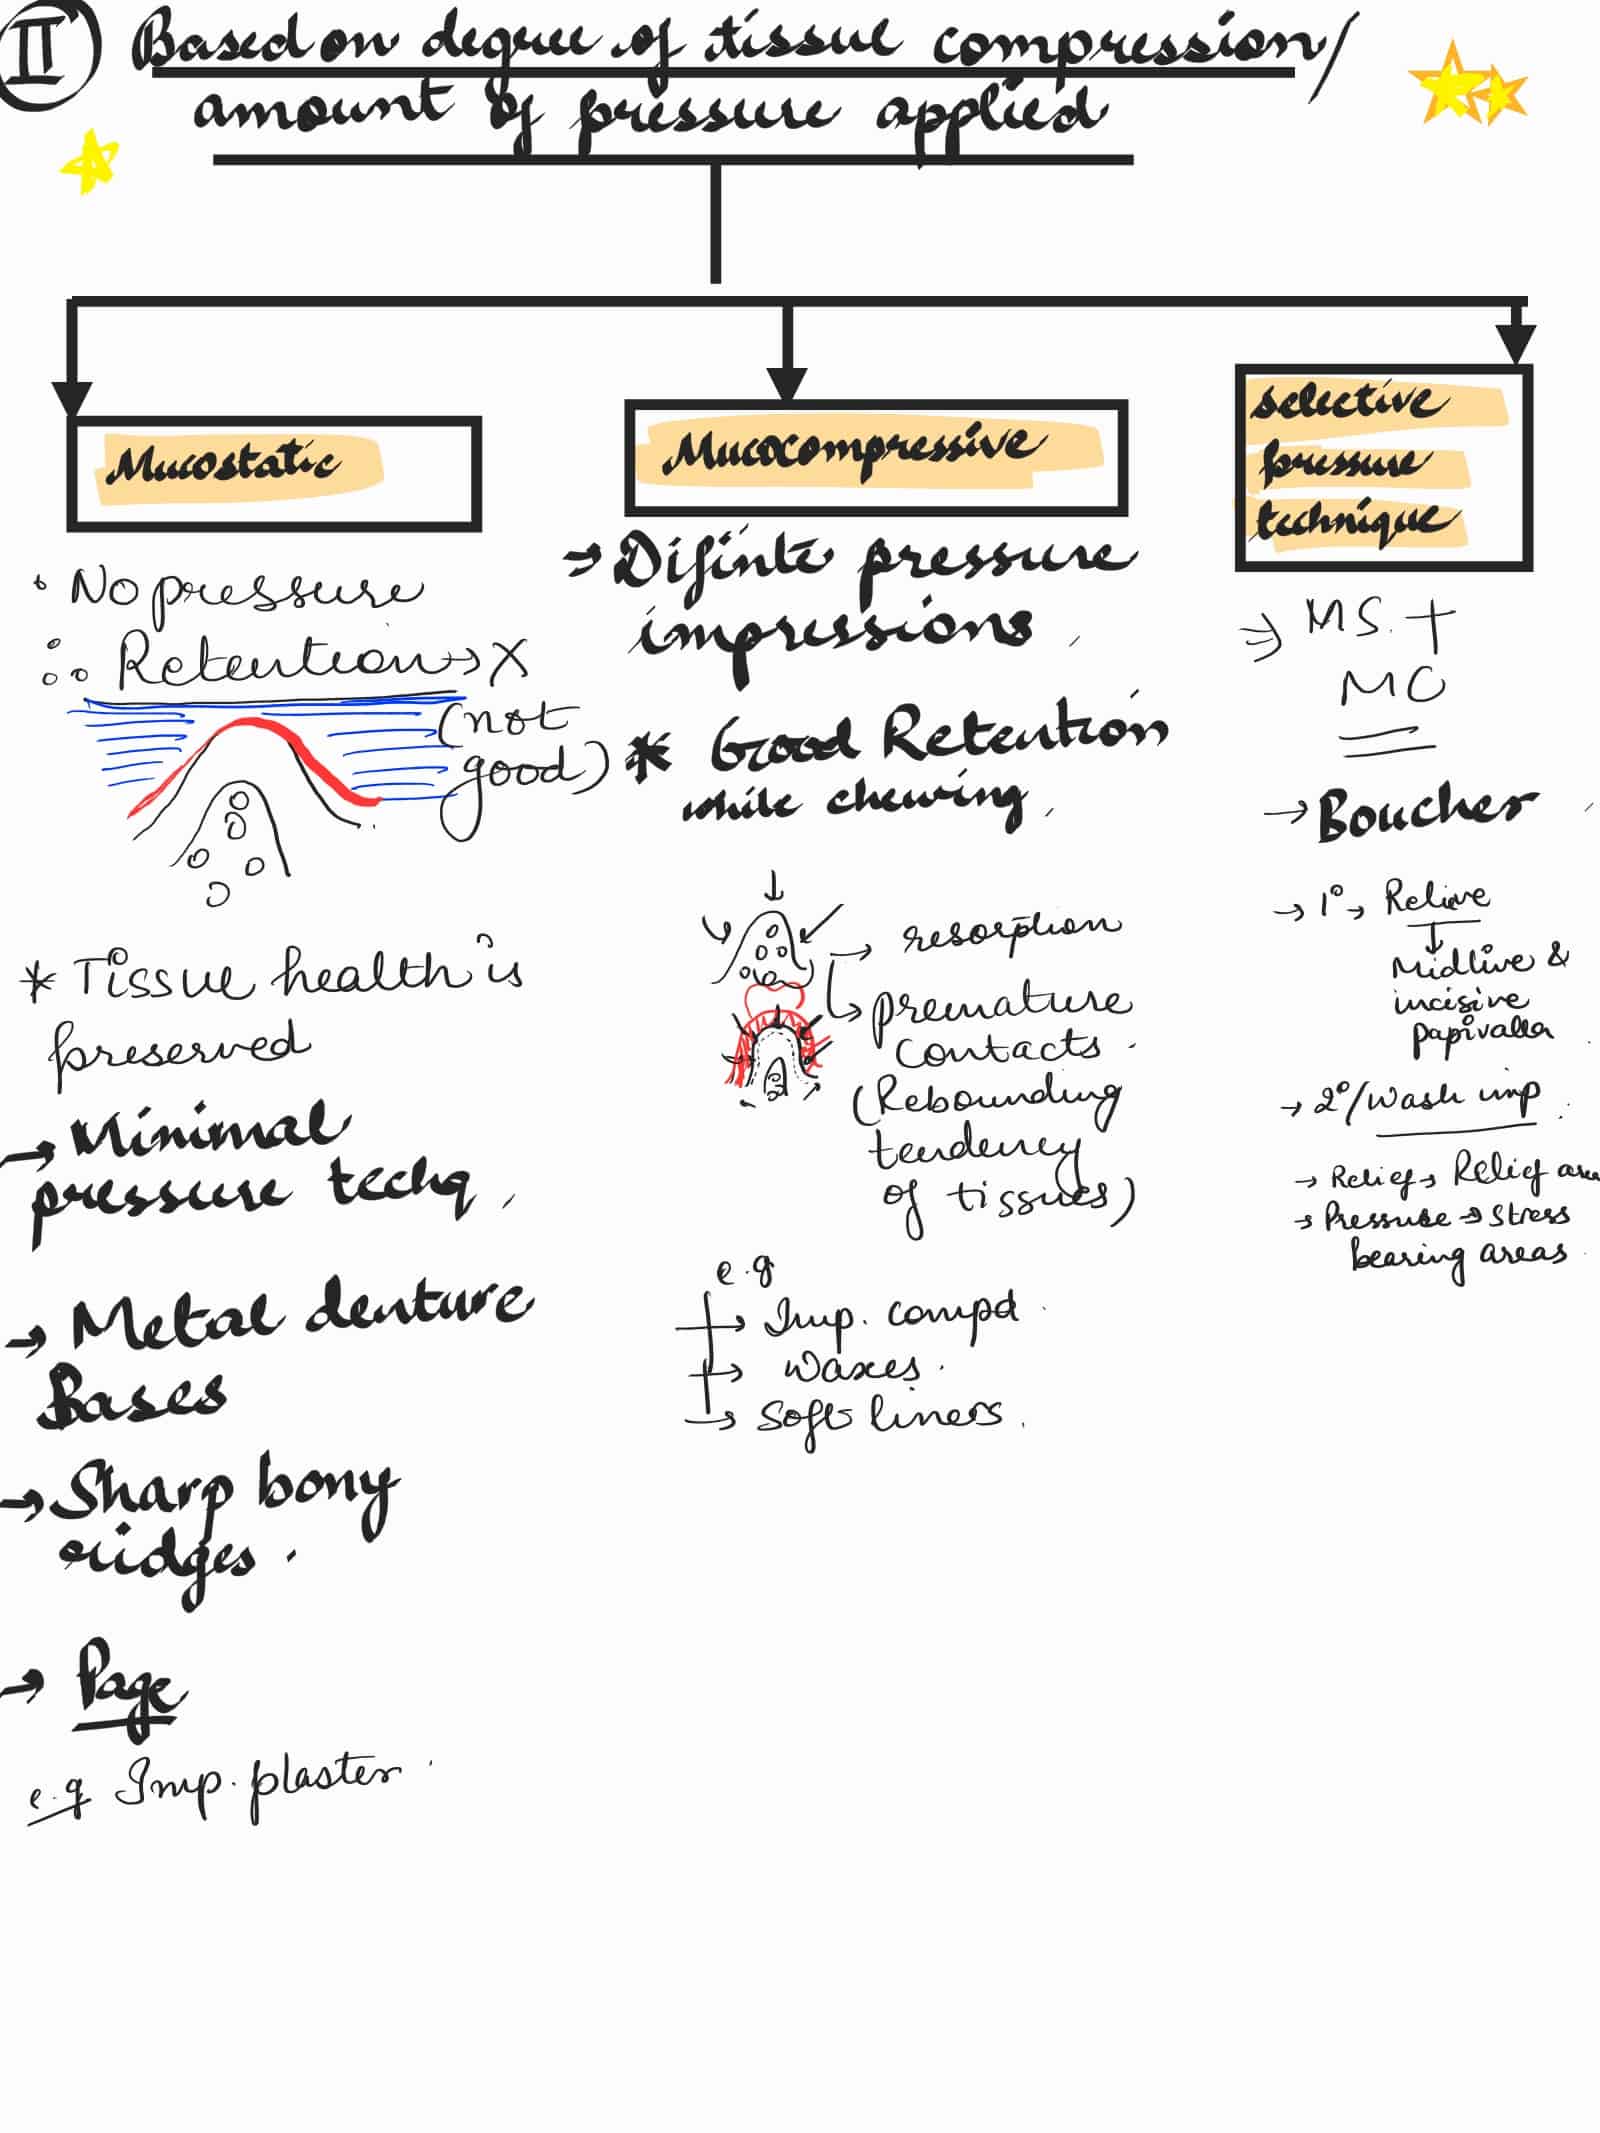 II Based on degree of tissue compression/
amount of pressure applied
Mucostatic
· No pressure
∴ Retention → X
(not
good)
* Tissue health is
preserved
→ Minimal
pressure techq.
→ Metal denture
Bases
→ Sharp bony
ridges.
→ Page
e.g Imp. plaster.
Mucocompressive
→ Difinte pressure
impressions.
* Good Retention
while chewing.
→ resorption
→ premature
contacts.
(Rebounding
tendency
of tissues)
e.g
→ Imp. compd.
→ waxes.
→ Soft liners.
selective
pressure
technique
⇒ MS. +
MC
→ Boucher
→ 1° → Relieve
↓
Midline &
incisive
papivalla
→ 2°/wash imp.
→ Relief → Relief area
→ Pressure → Stress
bearing areas.